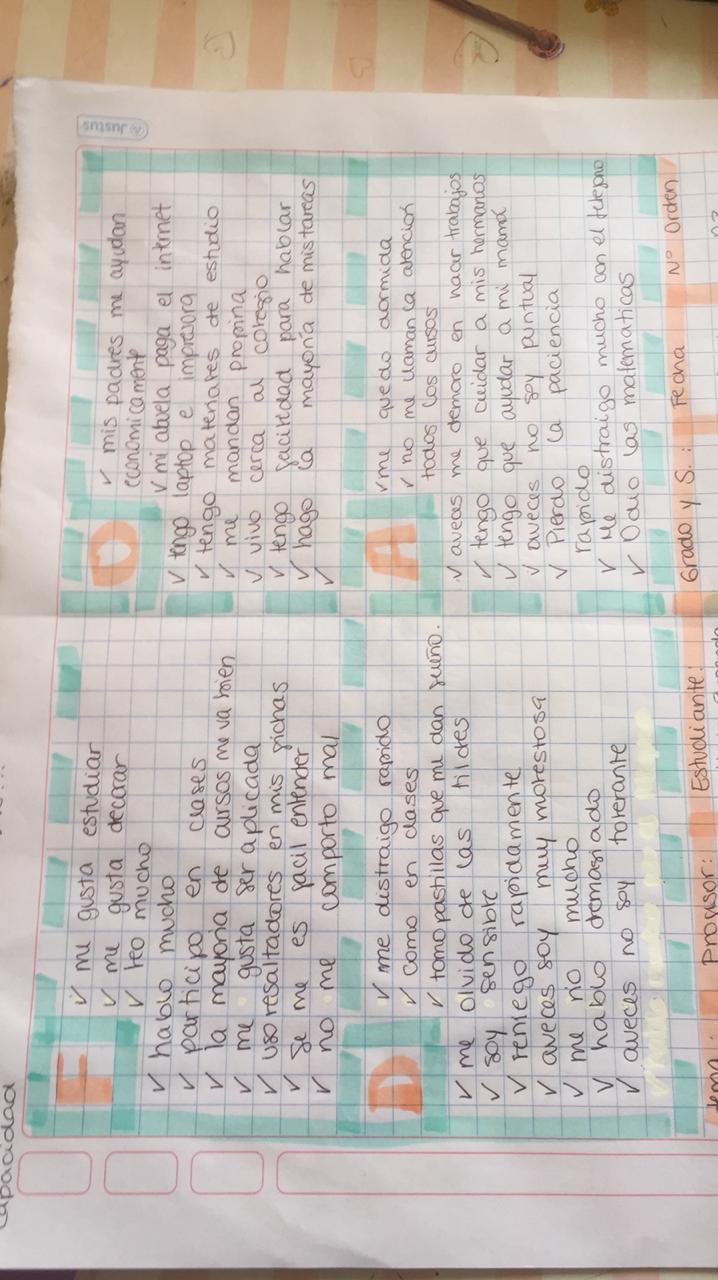 Capacidad
F
✓ me gusta estudiar
✓ me gusta decorar
✓ leo mucho
✓ hablo mucho
✓ participo en clases
✓ la mayoria de cursos me va bien
✓ me gusta ser aplicada
✓ uso resaltadores en mis fichas
✓ Se me es facil entender
✓ no me comporto mal
O
✓ mis padres me ayudan
económicament
✓ mi abuela paga el internet
✓ tengo laptop e impresora
✓ tengo materiales de estudio
✓ me mandan propina
✓ vivo cerca al colegio
✓ tengo facilidad para hablar
✓ hago la mayoría de mis tareas
✓
D
✓ me distraigo rapido
✓ como en clases
✓ tomo pastillas que me dan sueño.
✓ me olvido de las tildes
✓ soy sensible
✓ reniego rapidamente
✓ aveces soy muy molestosa
✓ me río mucho
✓ hablo demasiado
✓ aveces no soy tolerante
A
✓ me quedo dormida
✓ no me llaman la atención
todos los cursos
✓ aveces me demoro en hacer trabajos
✓ tengo que cuidar a mis hermanos
✓ tengo que ayudar a mi mamá
✓ aveces no soy puntual
✓ Pierdo la paciencia
rapido
✓ Me distraigo mucho con el telefono
✓ Odio las matematicas
Tema: Profesor: Estudiante: Grado y S.: Fecha N° Orden
Justus